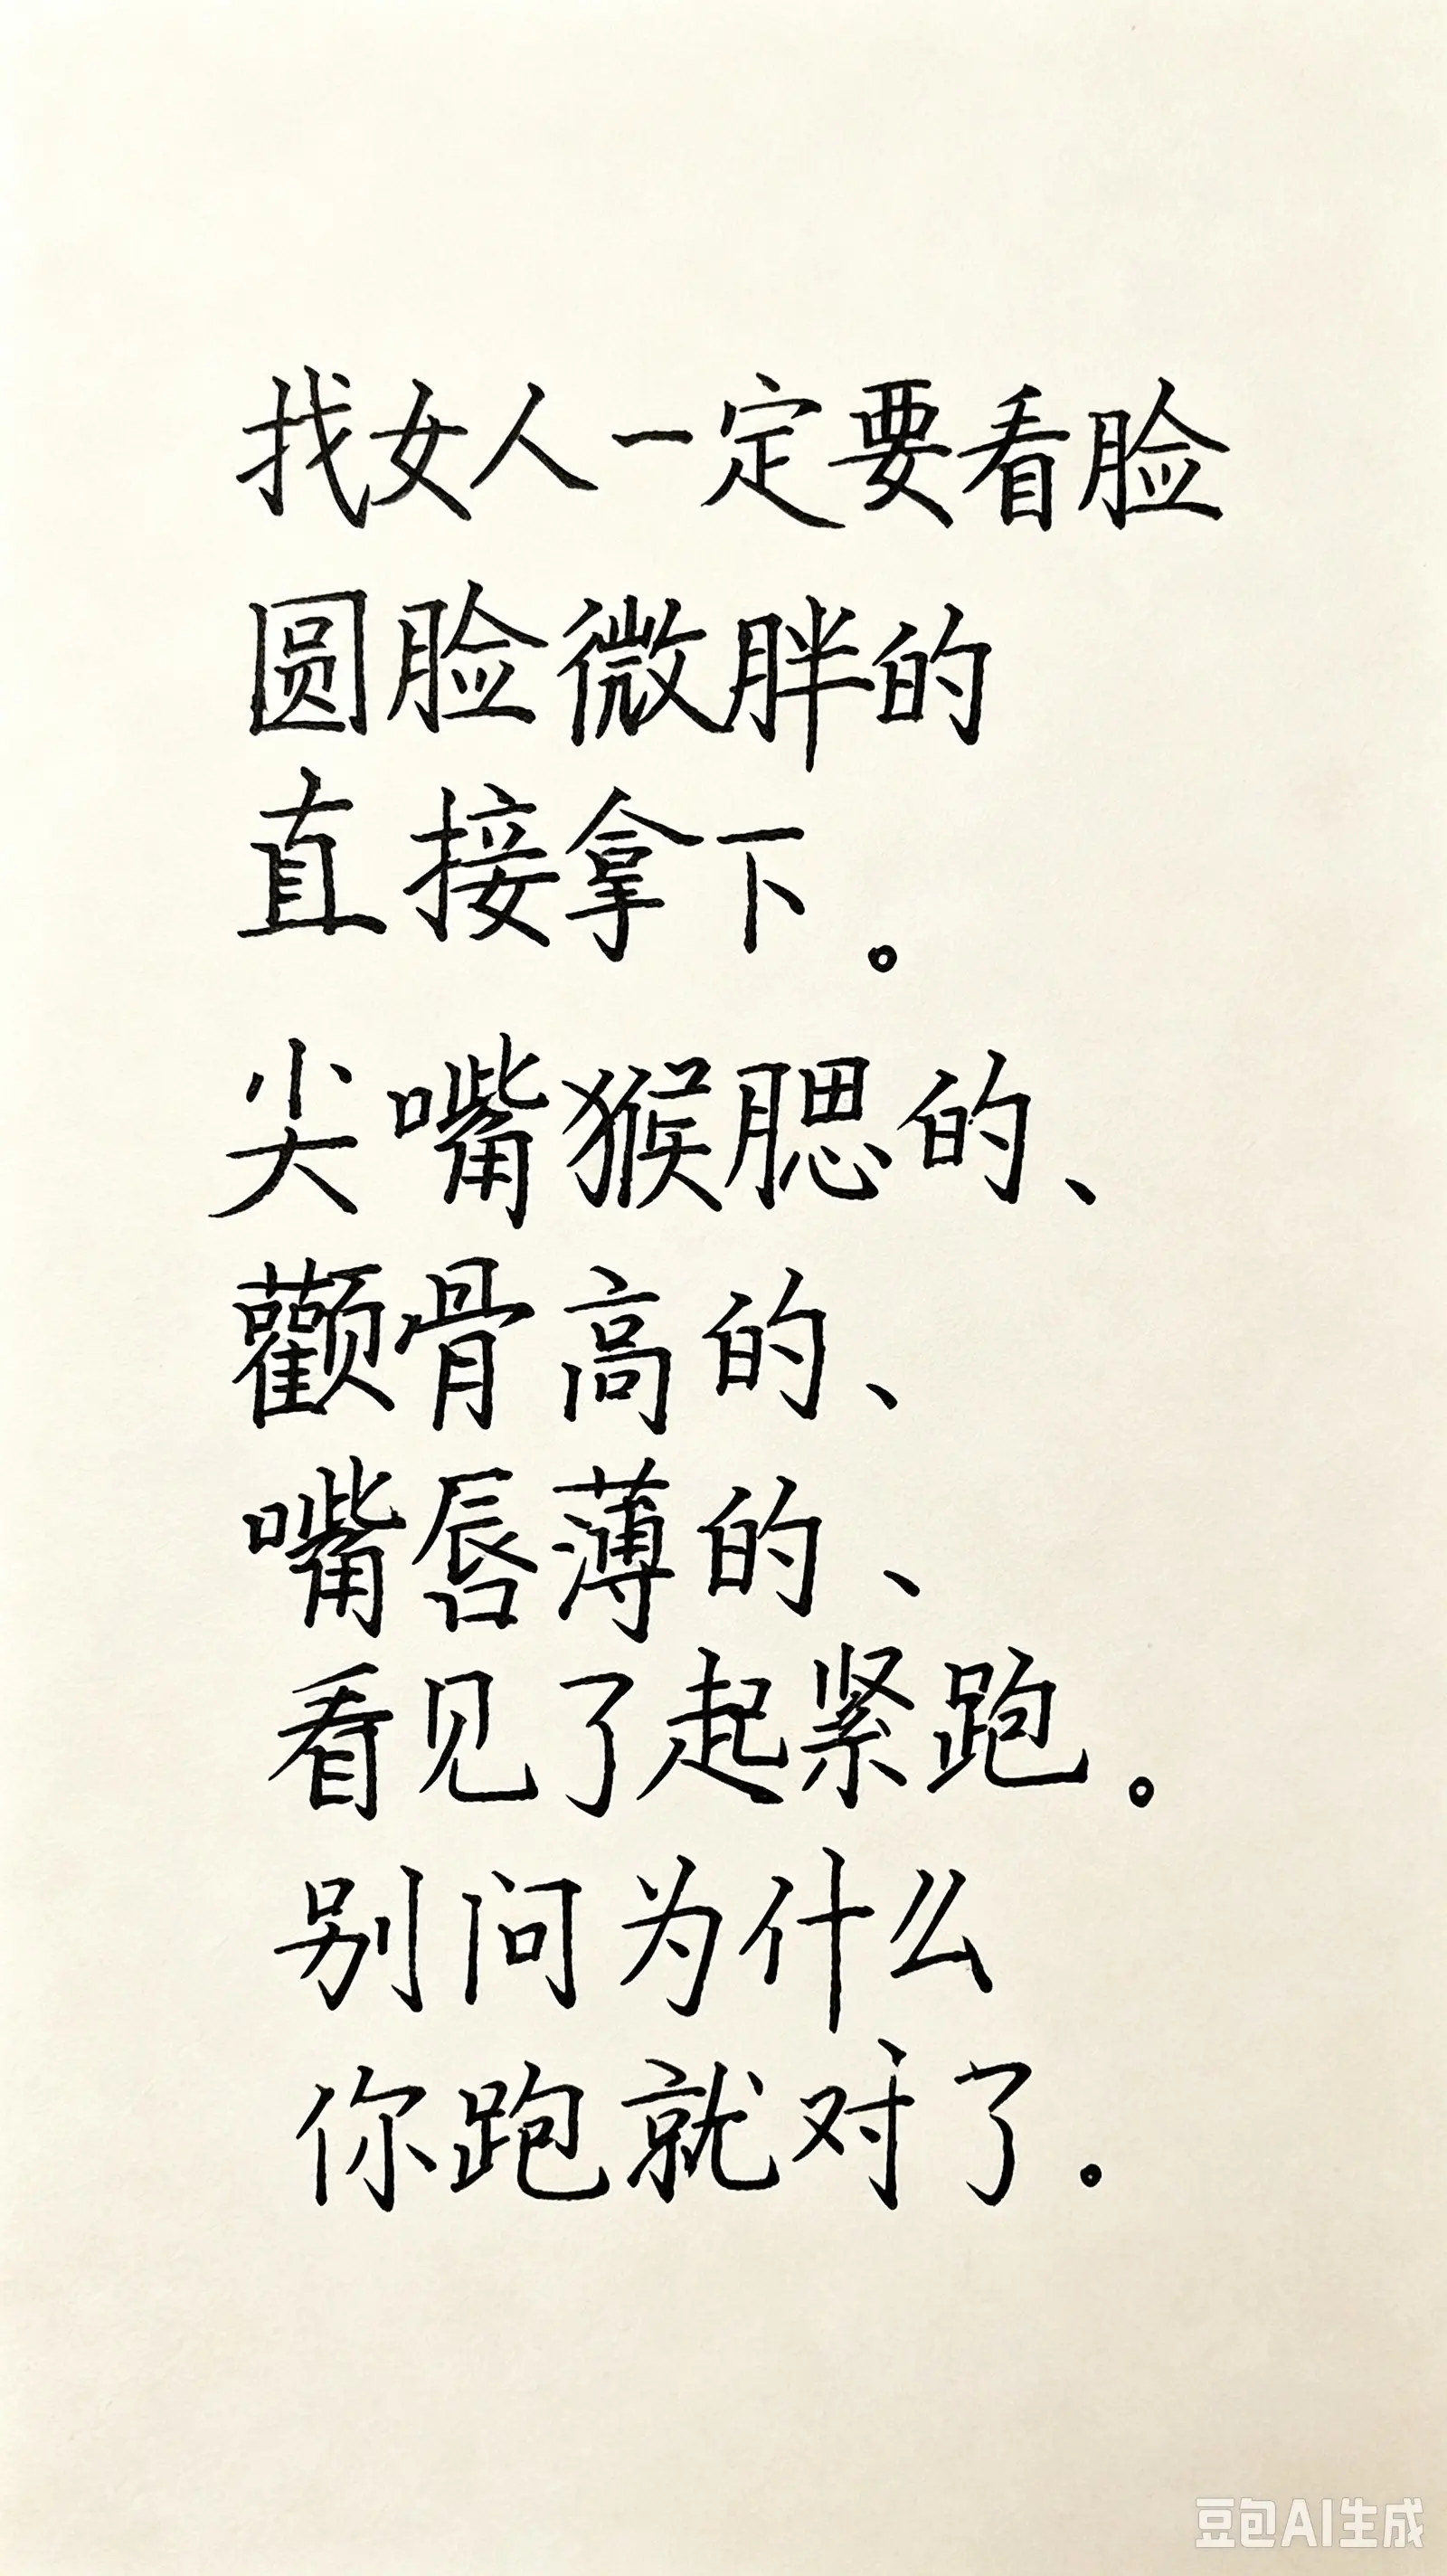 找女人一定要看脸
圆脸微胖的
直接拿下。
尖嘴猴腮的、
颧骨高的、
嘴唇薄的、
看见了起紧跑。
别问为什么
你跑就对了.
豆包AI生成